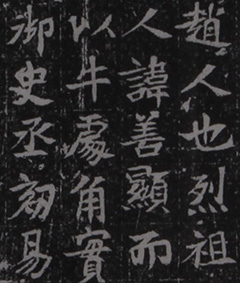 趙人也烈祖
人諱善顯而
以牛處角實
御史丞初易